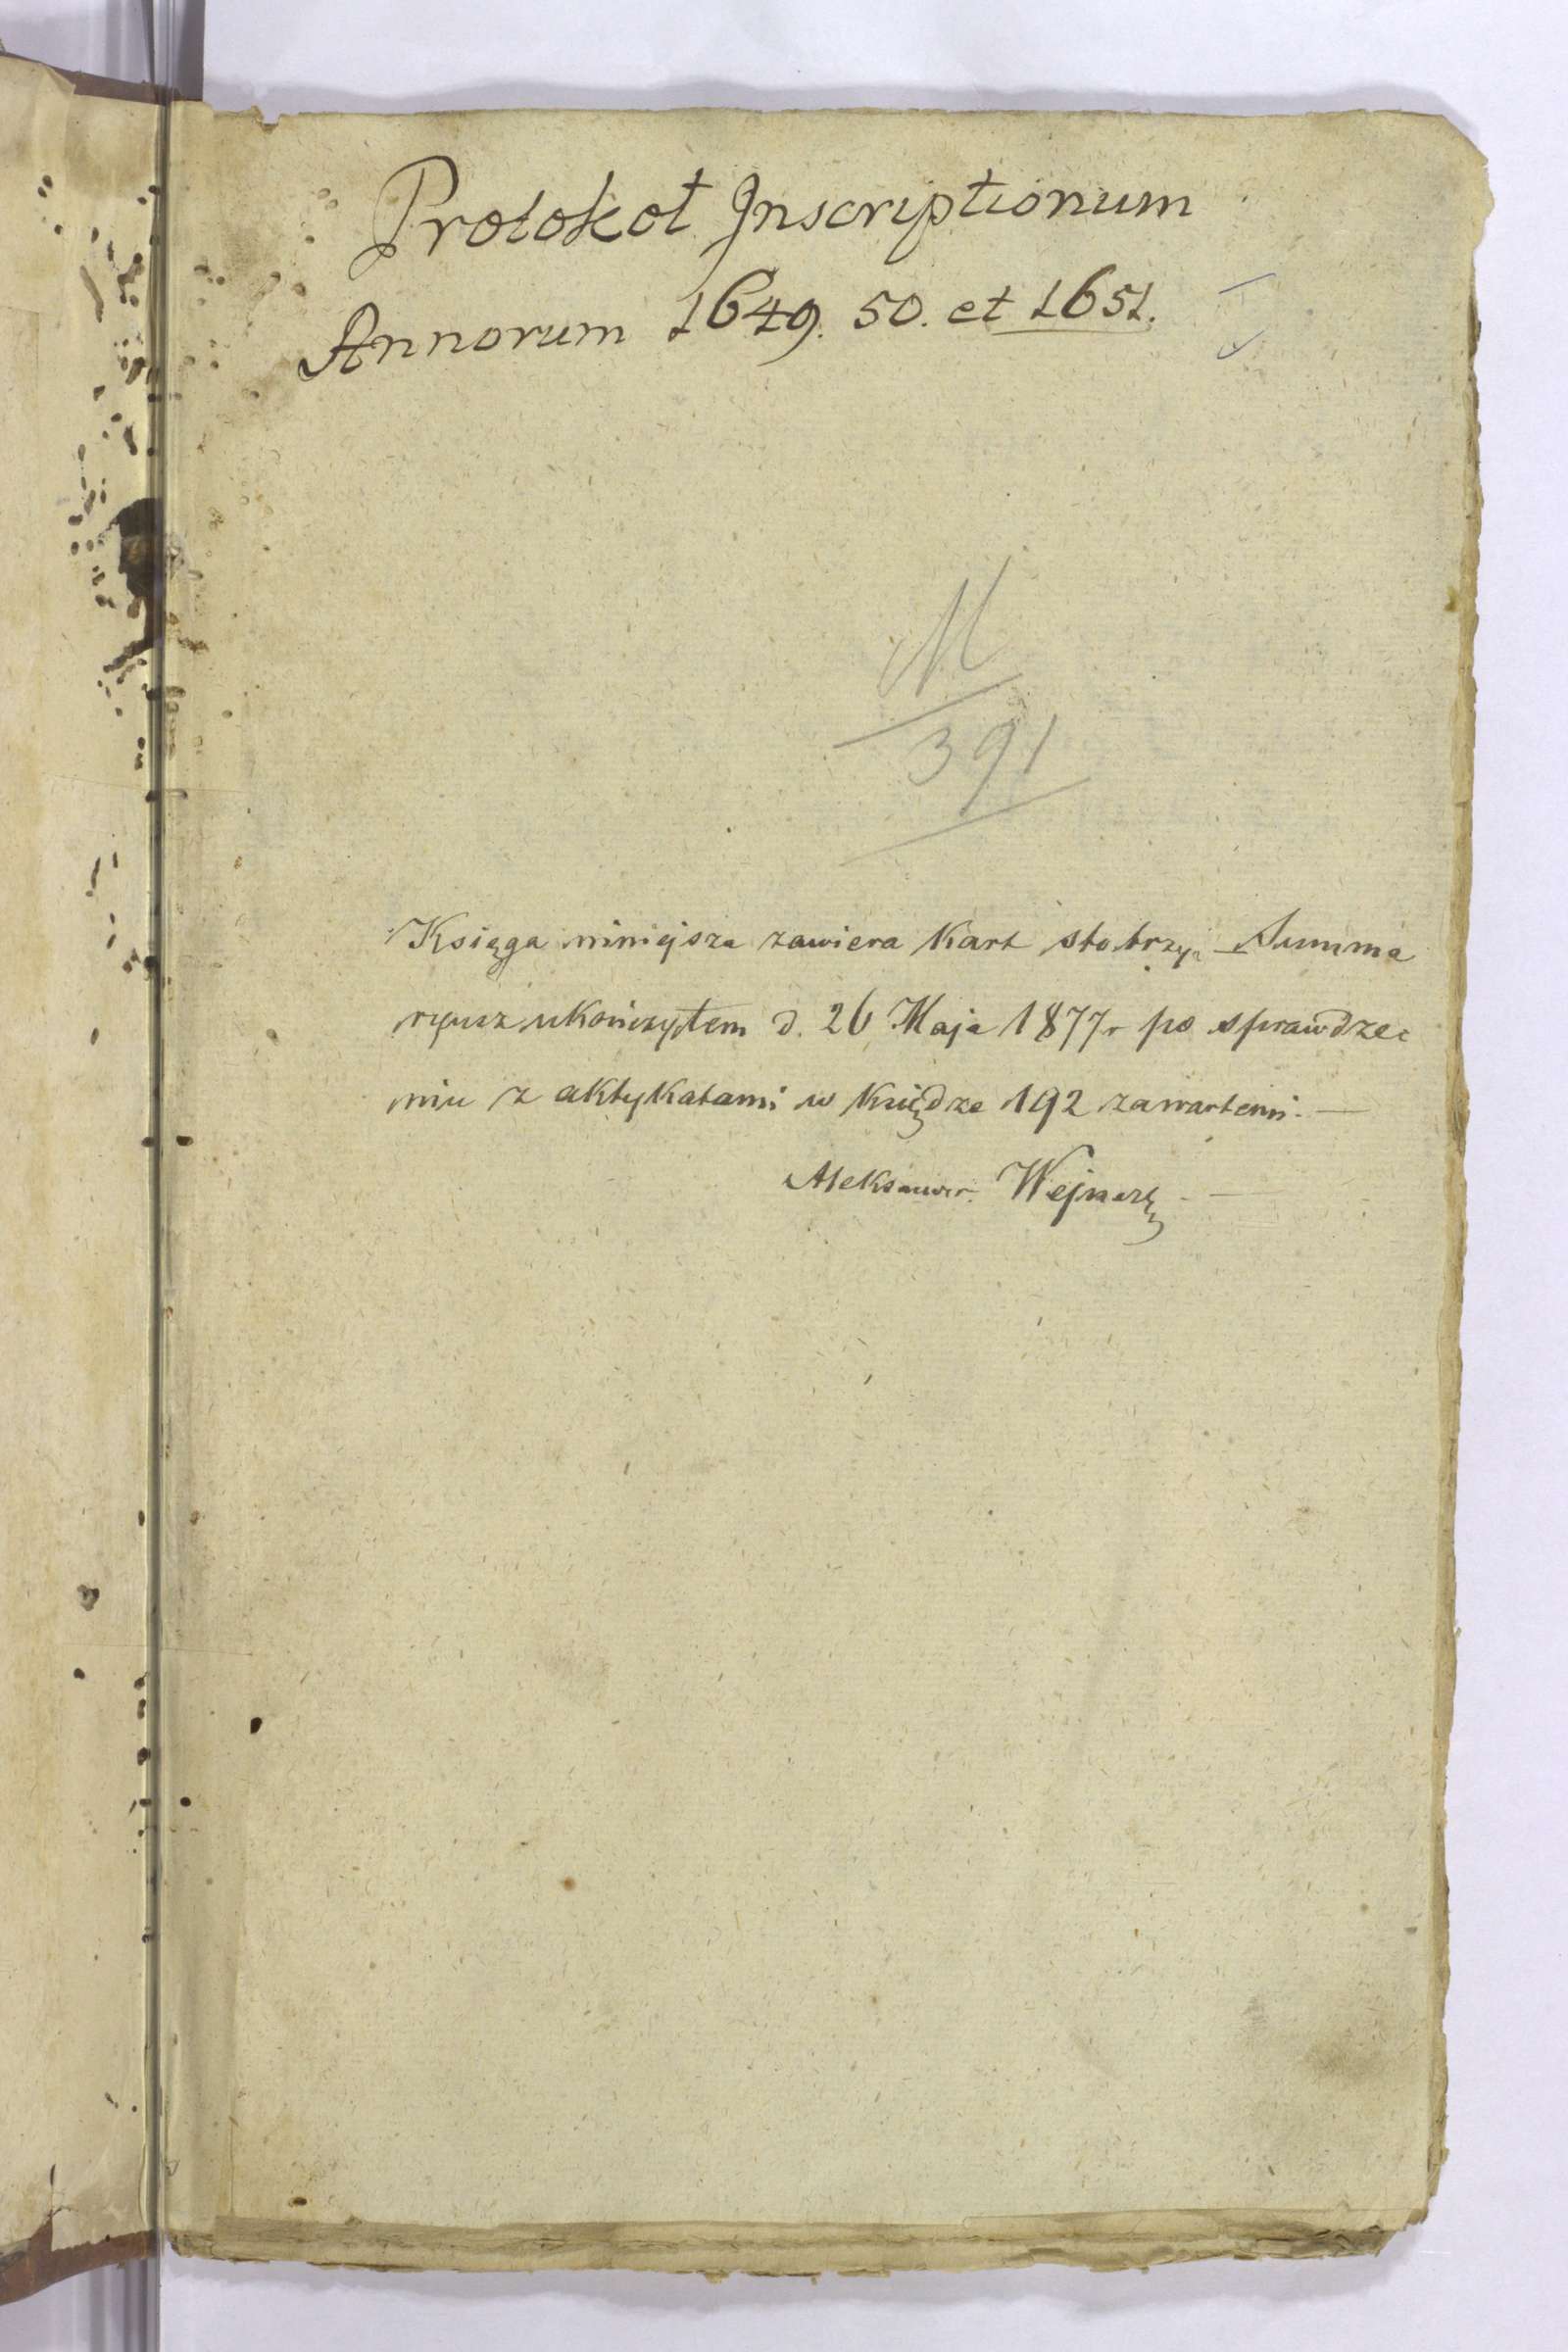 Protokoł Inscriptionum
Annorum 1649. 50. et 1651.
M
391
Księga niniejsza zawiera Kart sto trzy – Summa
ryusz ukończyłem d. 26 Maja 1877 r po sprawdze=
niu z aktykatami w księdze 192 zawartemi. —
Aleksander Wejnert —